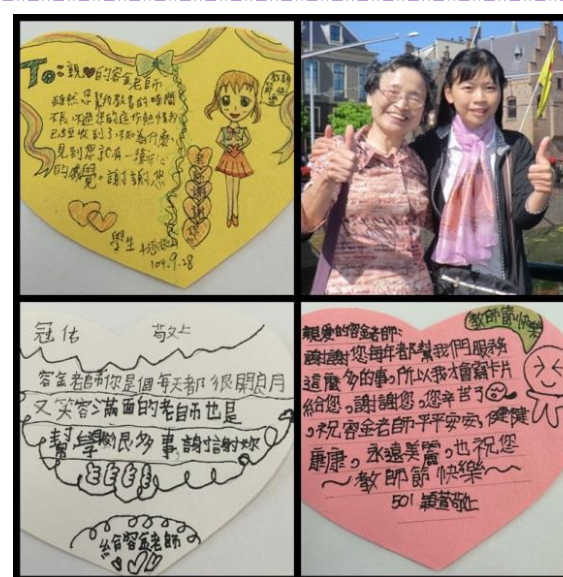 To:親♥的容金老師
雖然您幫我教書的時間
不長,不過您的這份熱情我
已經收到了,不知為什麼,
見到您就有一種開心
的感覺。謝謝您
學生
104.9.28
教師節快樂
老師謝謝您
冠佑 敬上
容金老師你是個每天都很開朗
又笑容滿面的老師也是
幫學很多事,謝謝妳
給容金老師
教師節快樂
親愛的容金老師:
謝謝您每年都幫我們服務
這麼多的事,所以我才會寫卡片
給您,謝謝您,您辛苦了
,祝容金老師平平安安,健健
康康,永遠美麗,也祝您
~教師節快樂~
501 穎萱敬上